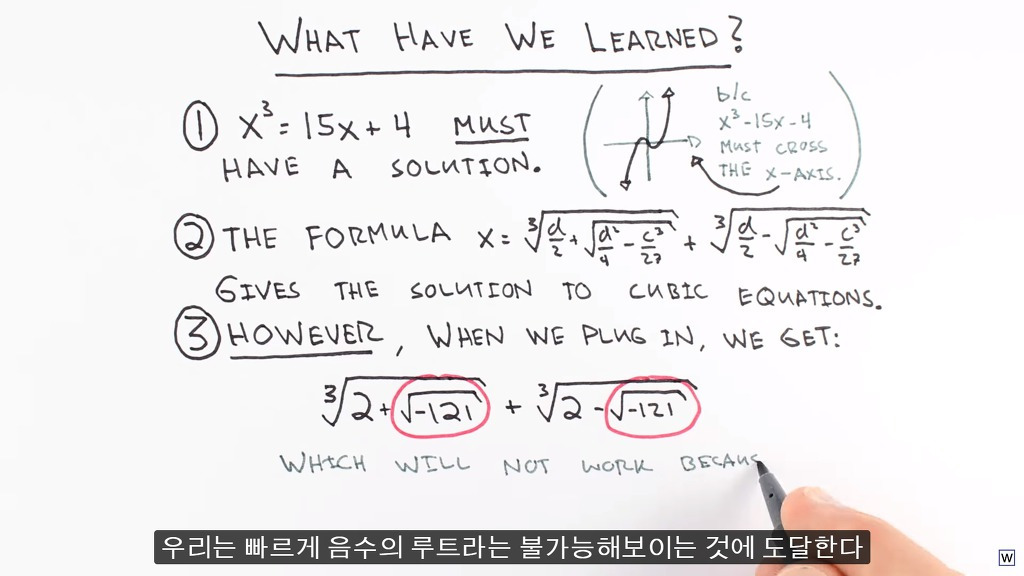 WHAT HAVE WE LEARNED?
① x³ = 15x + 4 MUST
HAVE A SOLUTION.
b/c
x³-15x-4
MUST CROSS
THE X-AXIS.
② THE FORMULA x = ∛(d/2 + √(d²/4 - c³/27)) + ∛(d/2 - √(d²/4 - c³/27))
GIVES THE SOLUTION TO CUBIC EQUATIONS.
③ HOWEVER, WHEN WE PLUG IN, WE GET:
∛(2 + √-121) + ∛(2 - √-121)
WHICH WILL NOT WORK BECAUS
우리는 빠르게 음수의 루트라는 불가능해보이는 것에 도달한다
W